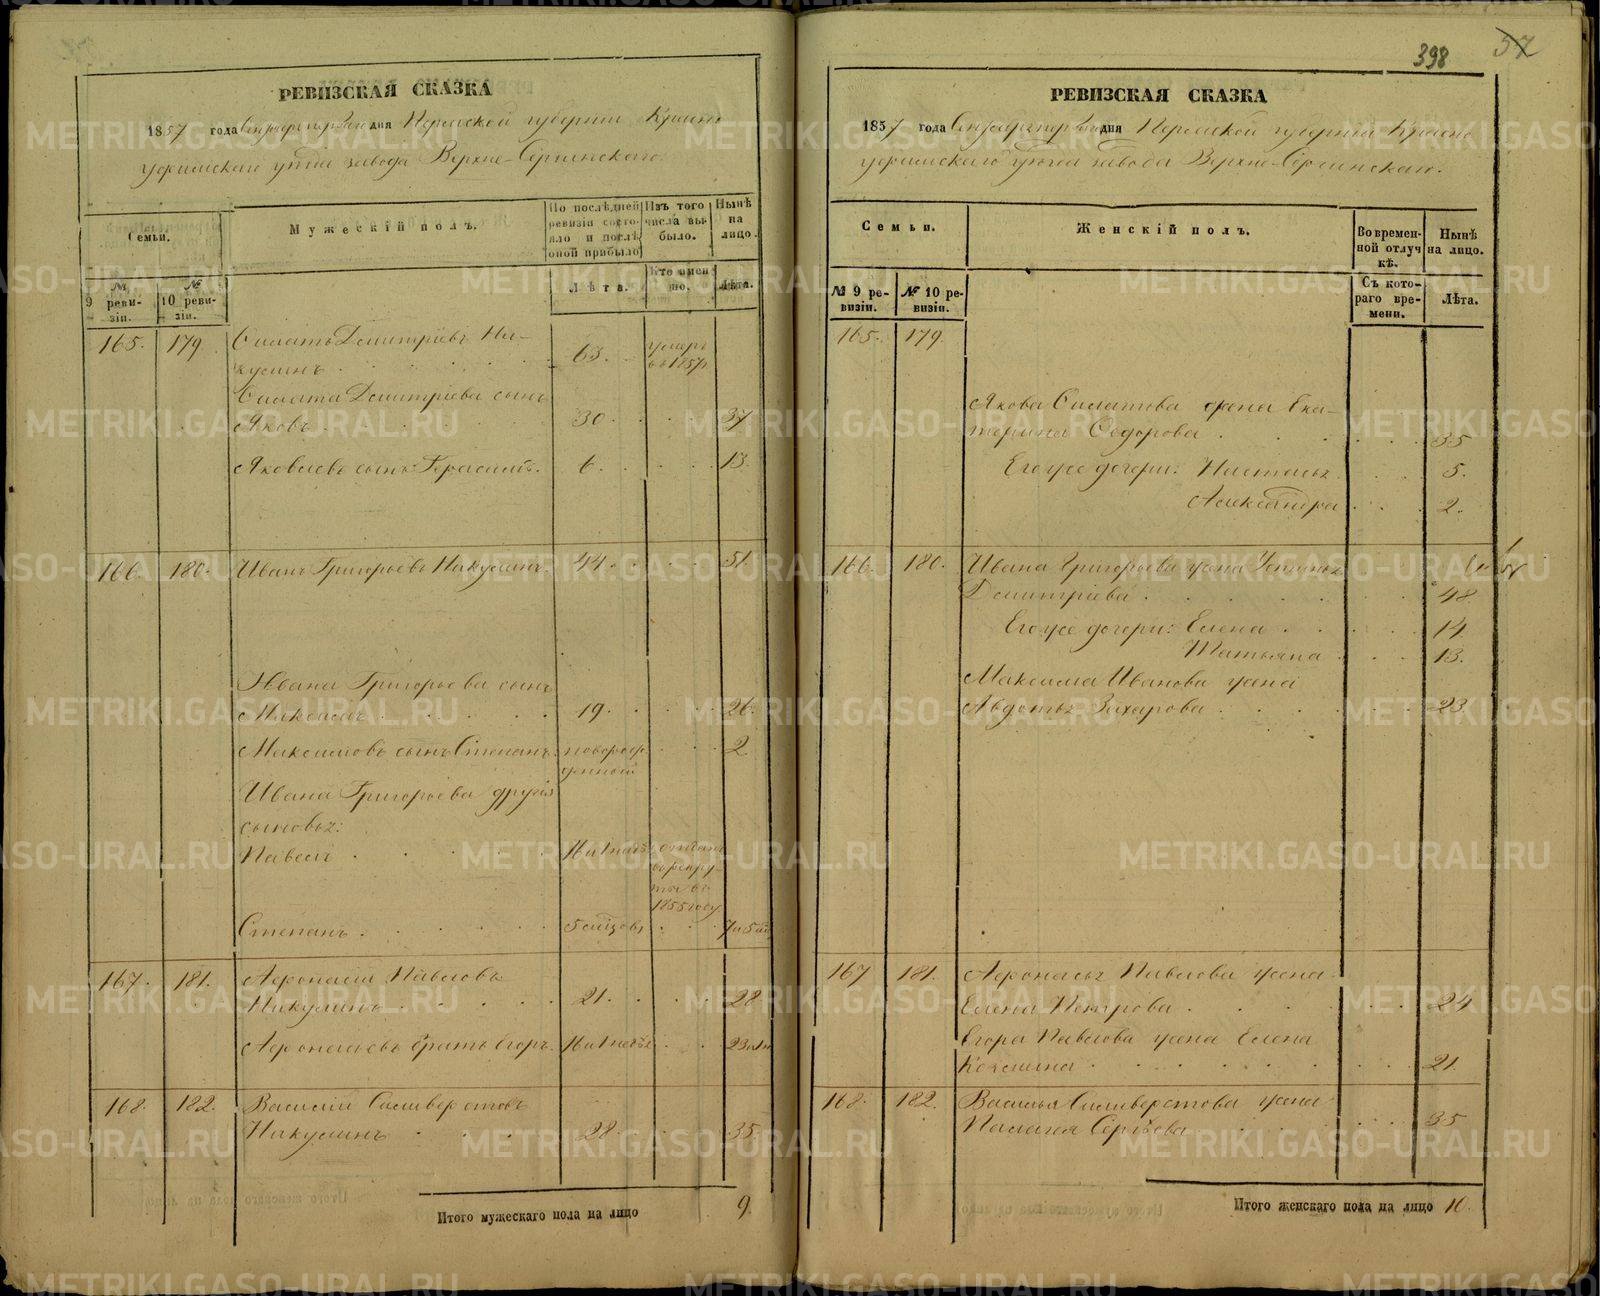 398 57
РЕВИЗСКАЯ СКАЗКА
1857 года Сентября дня Пермской губернии Красно
уфимскаго уѣзда завода Верхне-Сергинскаго.
Семьи.
Мужескій полъ.
По послѣдней ревизіи состояло и послѣ оной прибыло
Изъ того числа выбыло.
Нынѣ на лицо.
№ 9 ревизіи.
№ 10 ревизіи.
Лѣта.
Кто именно.
Лѣта.
165. 179. Силатъ Дмитріевъ Ни-
кулинъ 63. умеръ
въ 1857 г.
Силата Дмитріева сынъ
Яковъ 30. 37
Яковлевъ сынъ Герасимъ. 6. 13.
166. 180. Иванъ Григорьевъ Никулинъ. 44. 51.
Ивана Григорьева сынъ
Максимъ 19. 26.
Максимовъ сынъ Степанъ. новорож-
денный 2.
Ивана Григорьева другія
сыновья:
Павелъ отданъ
въ рекру-
ты въ
1855 году
Степанъ
167. 181. Афонасій Павловъ
Никулинъ 21. 28
Афонасьевъ братъ Егоръ.
168. 182. Василій Силиверстовъ
Никулинъ 28. 35.
Итого мужескаго пола на лицо 9.
РЕВИЗСКАЯ СКАЗКА
1857 года Сентября дня Пермской губерніи Красно
уфимскаго уѣзда завода Верхне-Сергинскаго.
Семьи.
Женскій полъ.
Во временной отлучкѣ.
Нынѣ на лицо.
№ 9 ревизіи.
№ 10 ревизіи.
Съ котораго времени.
Лѣта.
165. 179.
Якова Силатова жена Ека-
терина Федорова 35
Его же дочери: Настасья 5.
Александра 2.
166. 180. Ивана Григорьева жена Устинья
Дмитріева 48
Его же дочери: Елена 14
Татьяна 13.
Максима Иванова жена
Авдотья Захарова 23
167 181. Афонасья Павлова жена
Елена Петрова 24
Егора Павлова жена Елена
21.
168. 182. Василья Силиверстова жена
Палагея Сергѣева 35
Итого женскаго пола на лицо 10.
METRIKI.GASO-URAL.RU